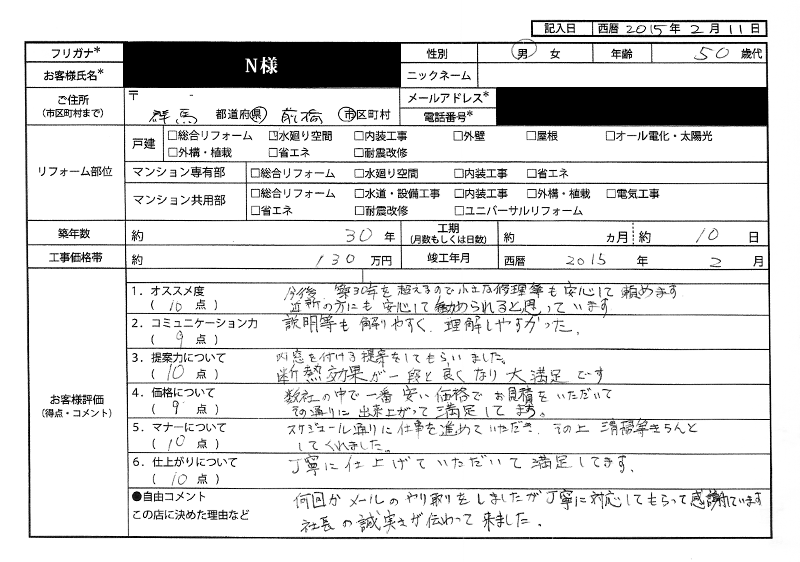 記入日 西暦 2015年 2月 11日
フリガナ* N様 性別 男 女 年齢 50 歳代
お客様氏名* ニックネーム
ご住所 〒 - メールアドレス*
(市区町村まで) 群馬 都道府県 前橋 市区町村 電話番号*
リフォーム部位 戸建 □総合リフォーム ☑水廻り空間 □内装工事 □外壁 □屋根 □オール電化・太陽光
□外構・植栽 □省エネ □耐震改修
マンション専有部 □総合リフォーム □水廻り空間 □内装工事 □省エネ
マンション共用部 □総合リフォーム □水道・設備工事 □内装工事 □外構・植栽 □電気工事
□省エネ □耐震改修 □ユニバーサルリフォーム
築年数 約 30 年 工期 (月数もしくは日数) 約 ヵ月 約 10 日
工事価格帯 約 130 万円 竣工年月 西暦 2015 年 2 月
お客様評価
(得点・コメント)
1. オススメ度 今後、築30年を超えるので小さな修理等も安心して頼めます
( 10 点 ) 近所の方にも安心して勧められると思っています
2. コミュニケーション力 説明等も解りやすく、理解しやすかった。
( 9 点 )
3. 提案力について 内窓を付ける提案をしてもらいました。
( 10 点 ) 断熱効果が一段と良くなり大満足です
4. 価格について 数社の中で一番安い価格でお見積をいただいて
( 9 点 ) その通りに出来上がって満足してます。
5. マナーについて スケジュール通りに仕事を進めていただき、その上清掃等きちんと
( 10 点 ) してくれました。
6. 仕上がりについて 丁寧に仕上げていただいて満足してます。
( 10 点 )
●自由コメント 何回かメールのやり取りをしましたが丁寧に対応してもらって感謝しています
この店に決めた理由など 社長の誠実さが伝わって来ました。